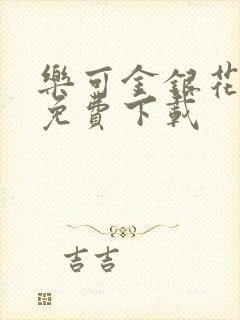 樂可金銀花
免費下載
吉吉